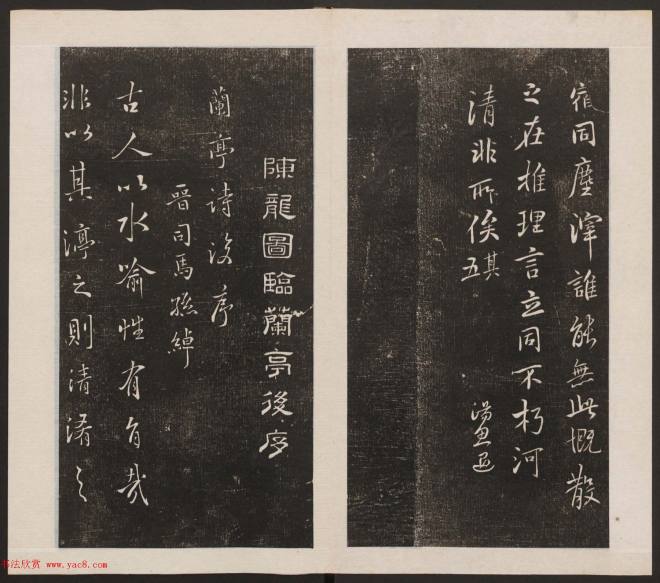 宿同塵滓誰能無此慨散
之在推理言立同不朽河
清非所俟其
五
陳龍圖臨蘭亭後序
蘭亭詩後序
晉司馬孫綽
古人以水喻性有旨哉
非以其渟之則清淆之
书法欣赏 www.yac8.com